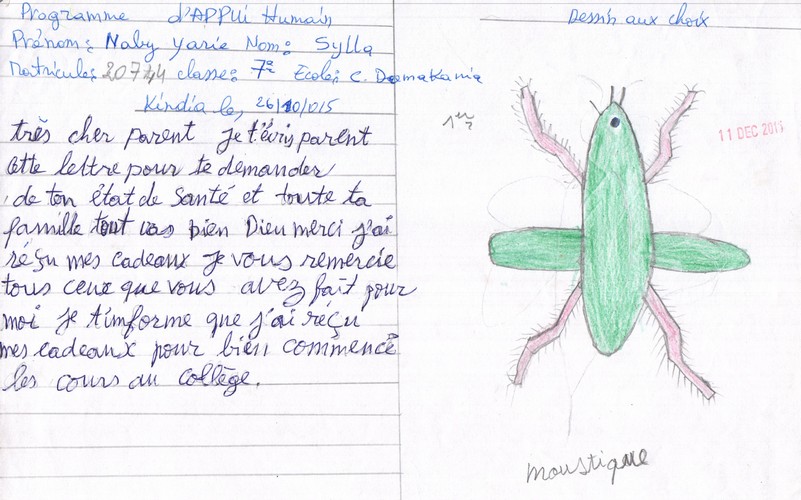 Programme d'APPUi Humain
Prénom: Naby Yarie Nom: Sylla
Matricule: 20744 classe: 7e Ecole: C. Damakania
Kindia le, 26/10/015
très cher parent je t'écris parent
cette lettre pour te demander
de ton état de Santé et toute ta
famille tout vas bien Dieu merci j'ai
réçu mes cadeaux je vous remercie
tous ceux que vous avez fait pour
moi je t'imforme que j'ai réçu
mes cadeaux pour bien commencé
les cours au collège.
Dessin aux choix
11 DEC 2015
moustique